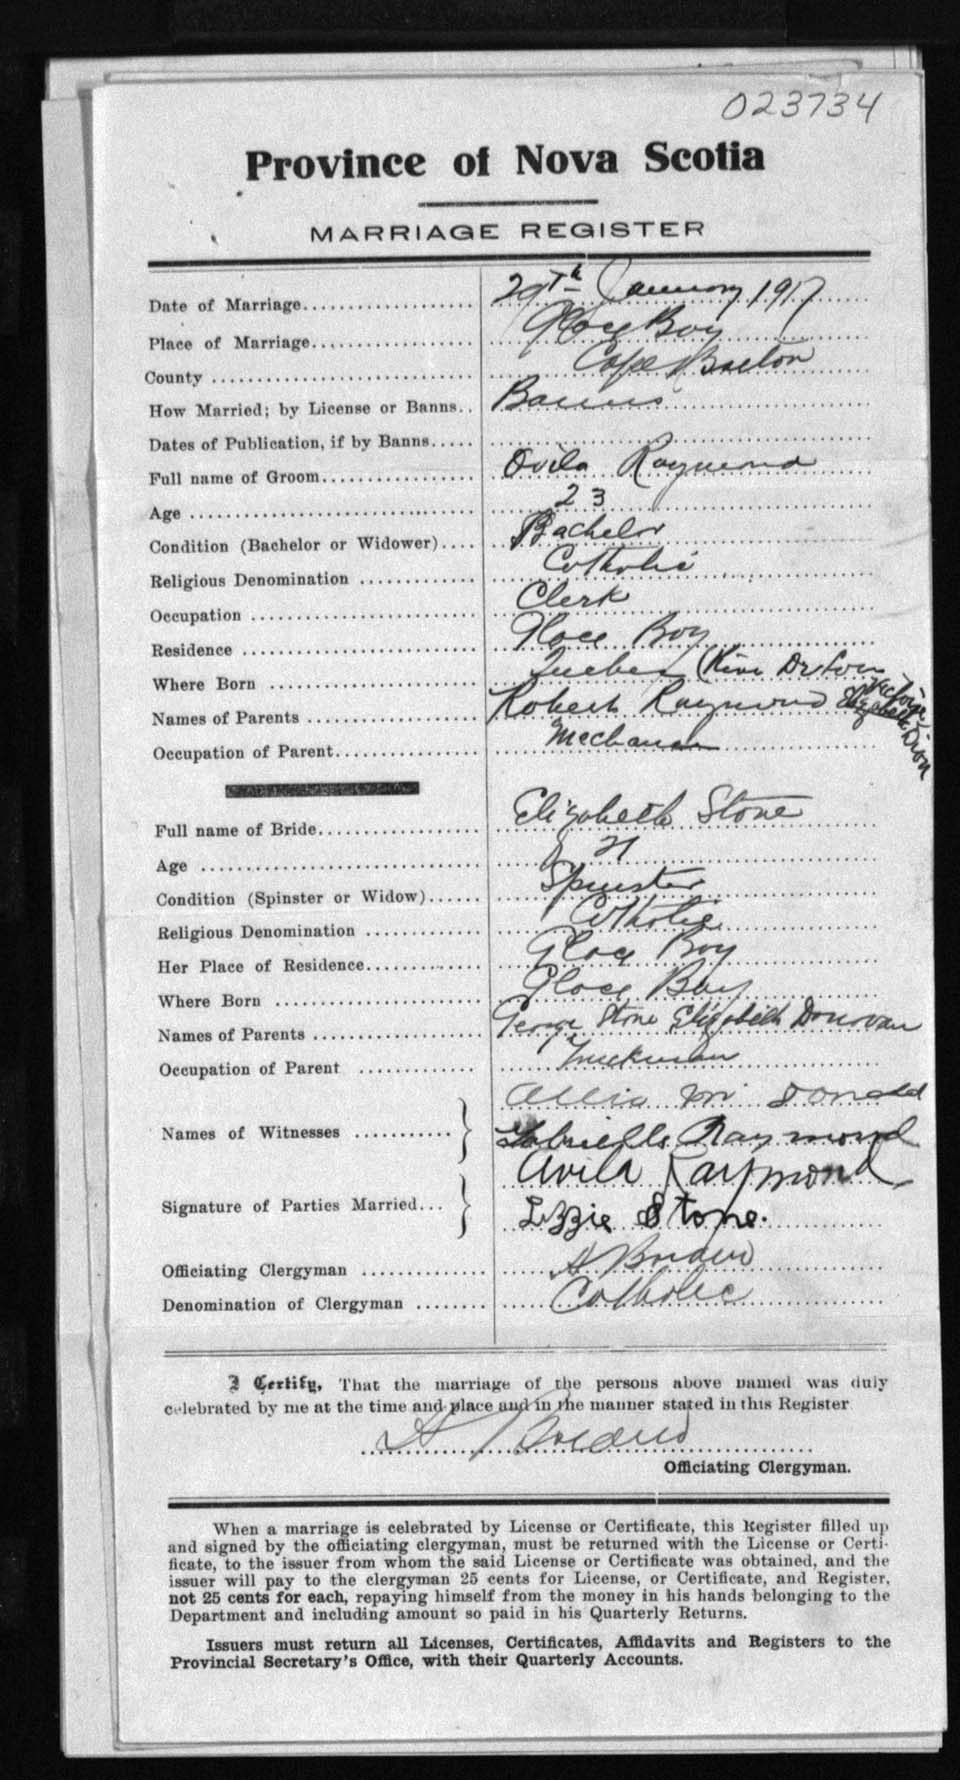 023734
Province of Nova Scotia
MARRIAGE REGISTER
Date of Marriage.................... 29th January 1917
Place of Marriage................... Glace Bay
County .............................. Cape Breton
How Married; by License or Banns.. Banns
Dates of Publication, if by Banns.....
Full name of Groom.................. Ovila Raymond
Age ................................. 23
Condition (Bachelor or Widower).... Bachelor
Religious Denomination ............ Catholic
Occupation ......................... Clerk
Residence .......................... Glace Bay
Where Born ........................ Quebec
Names of Parents .................. Robert Raymond Elizabeth Dion
Occupation of Parent................ Mechanic
Full name of Bride.................. Elizabeth Stone
Age ................................. 21
Condition (Spinster or Widow)...... Spinster
Religious Denomination ............ Catholic
Her Place of Residence.............. Glace Bay
Where Born ........................ Glace Bay
Names of Parents .................. George Stone Elizabeth Donovan
Occupation of Parent ............. Truckman
Allie Mc Donald
Names of Witnesses ........... Gabrielle Raymond
Avila Raymond
Signature of Parties Married...
Lizzie Stone.
Officiating Clergyman ..............
Denomination of Clergyman ........ Catholic
I Certify, That the marriage of the persons above named was duly
celebrated by me at the time and place and in the manner stated in this Register
Officiating Clergyman.
When a marriage is celebrated by License or Certificate, this Register filled up
and signed by the officiating clergyman, must be returned with the License or Certi-
ficate, to the issuer from whom the said License or Certificate was obtained, and the
issuer will pay to the clergyman 25 cents for License, or Certificate, and Register,
not 25 cents for each, repaying himself from the money in his hands belonging to the
Department and including amount so paid in his Quarterly Returns.
Issuers must return all Licenses, Certificates, Affidavits and Registers to the
Provincial Secretary's Office, with their Quarterly Accounts.